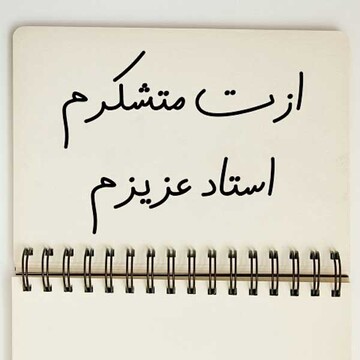 ازت متشکرم
استاد عزیزم